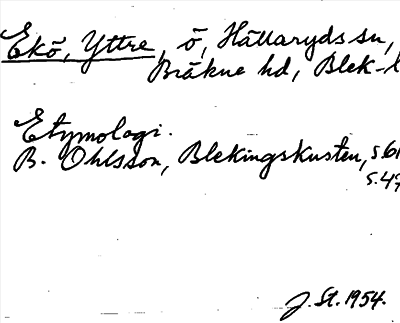 Ekö, Yttre, ö, Hällaryds sn,
Bräkne hd, Blek-
Etymologi.
B. Ohlsson, Blekingskusten, s.
s. 49
J. St. 1954.